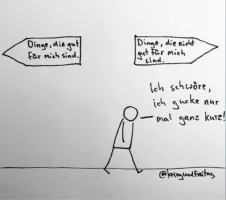 Dinge, die gut
für mich sind.
Dinge, die nicht
gut für mich
sind.
Ich schwöre,
ich gucke nur
mal ganz kurz!